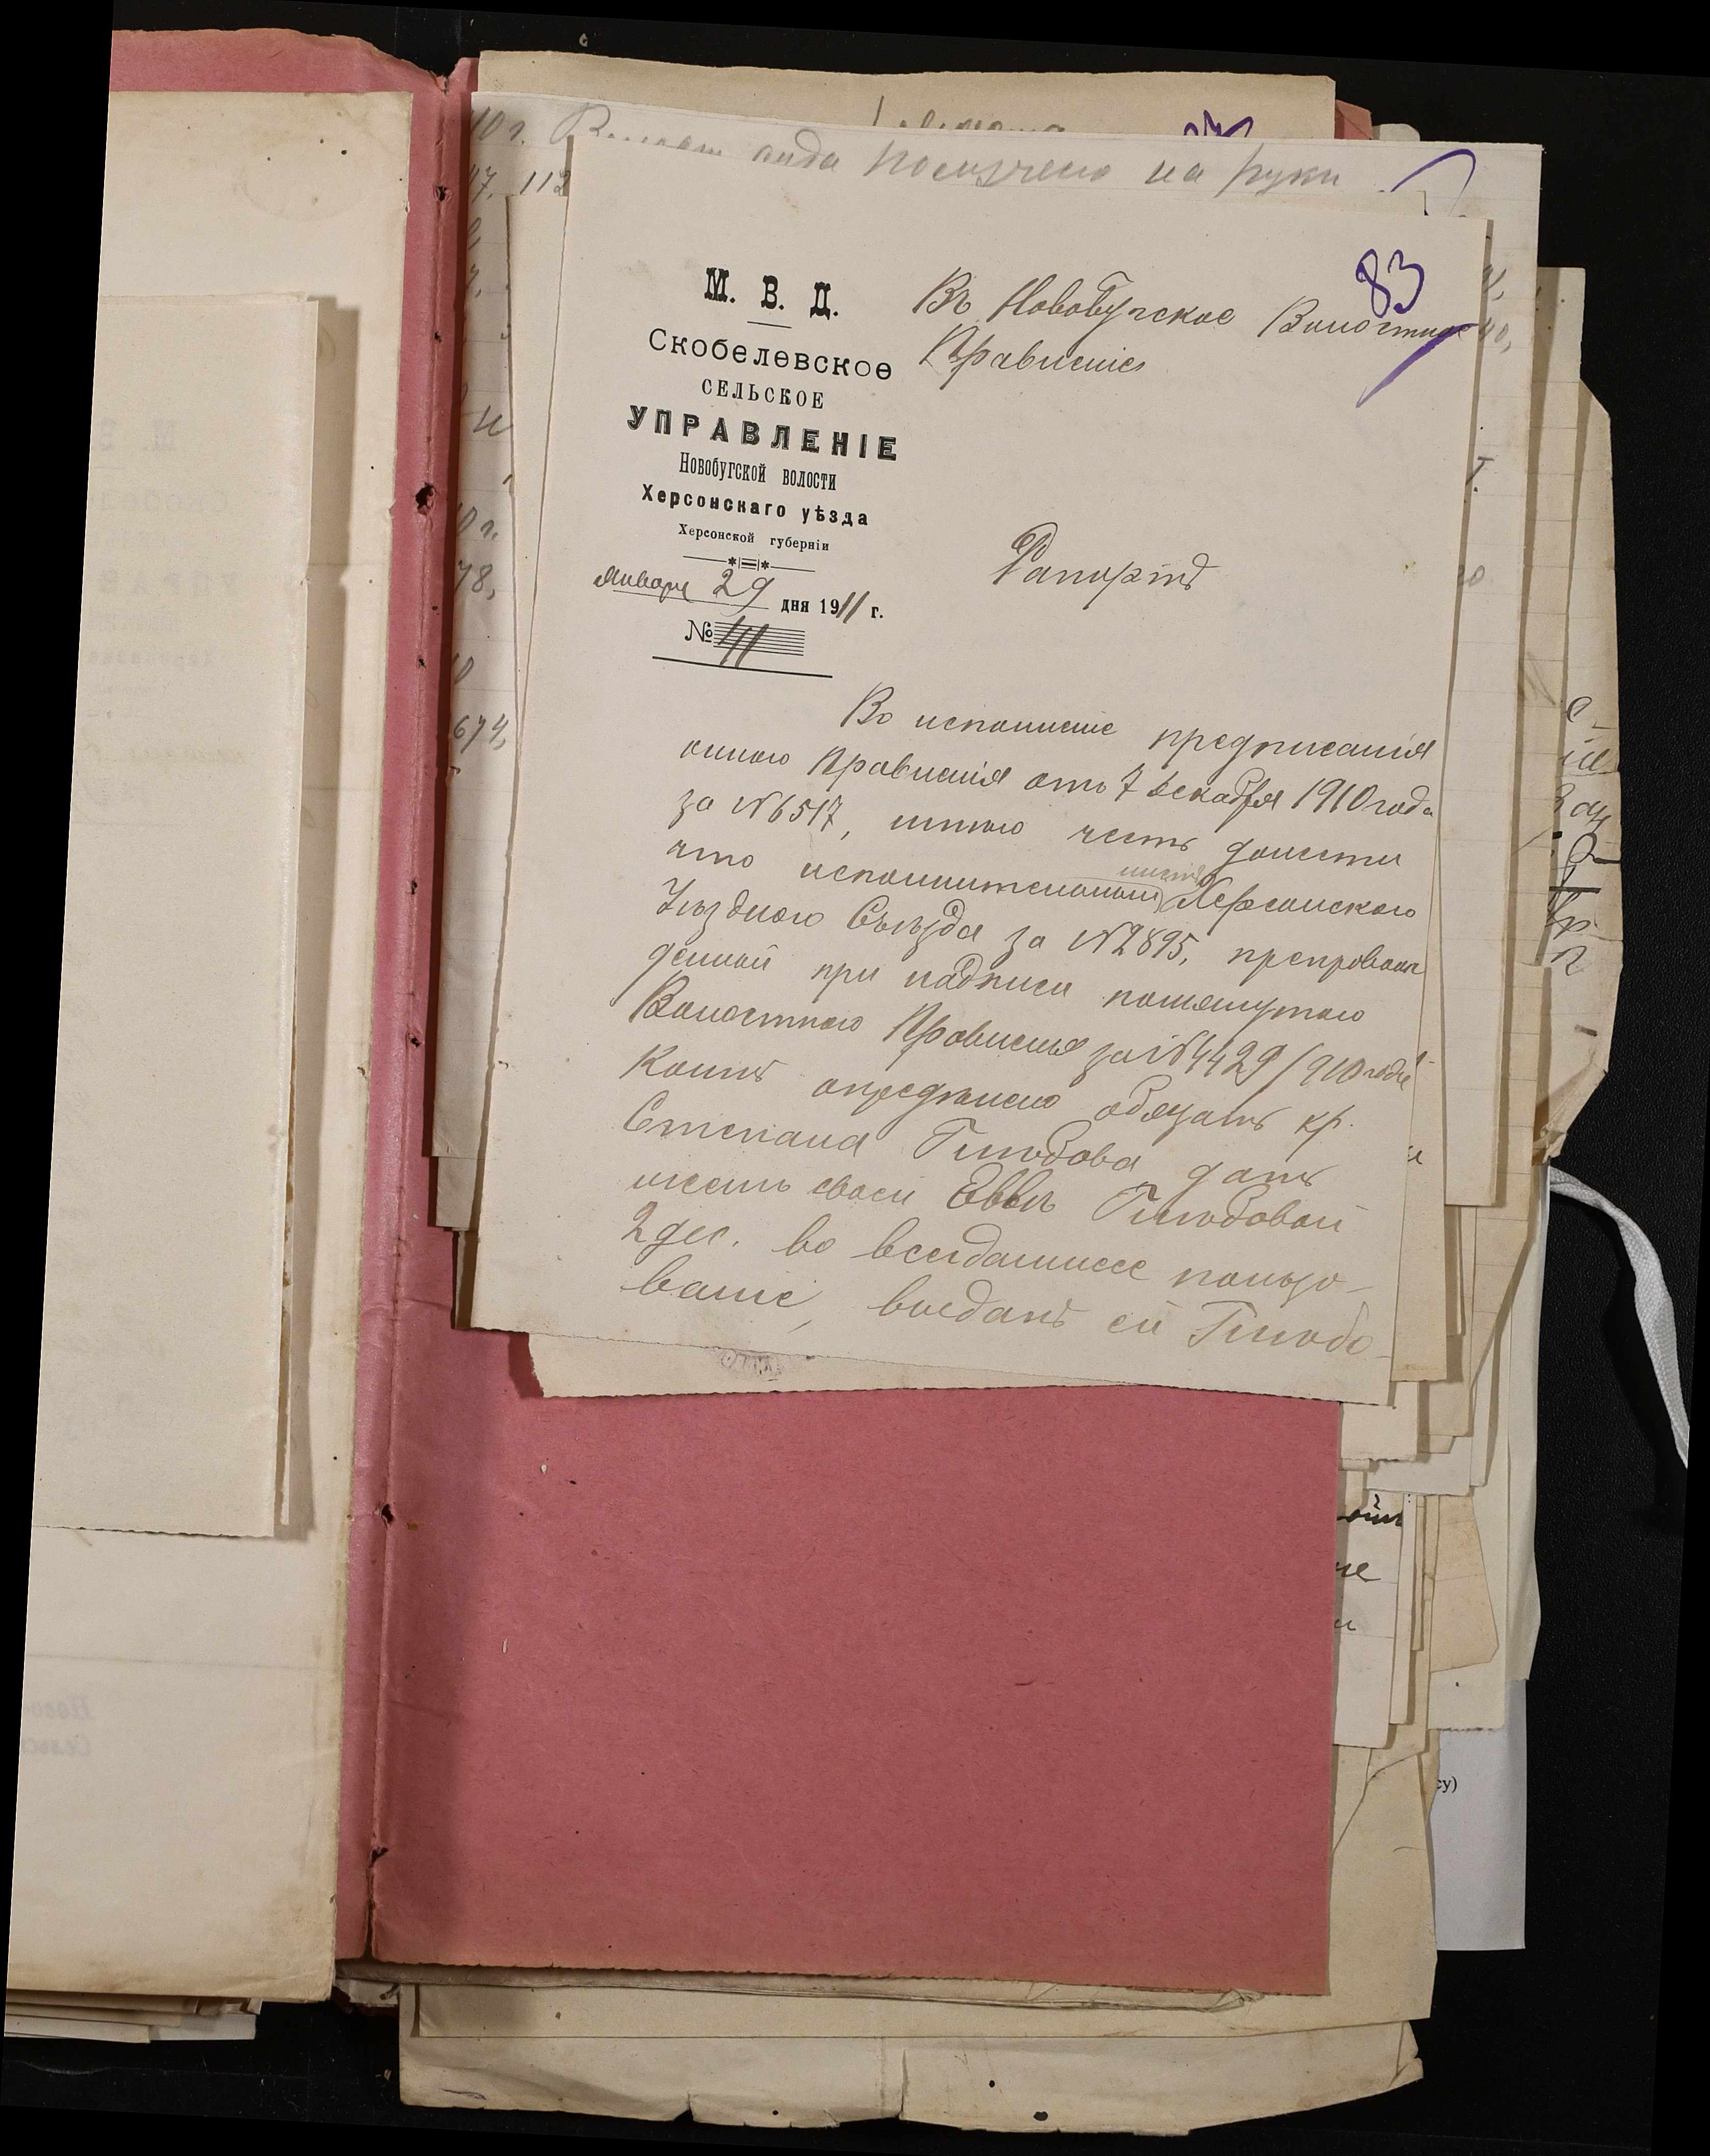 получено на руки
83
М. В. Д.
Скобелевское
СЕЛЬСКОЕ
УПРАВЛЕНІЕ
Новобугской волости
Херсонскаго уѣзда
Херсонской губерніи
Января 29 дня 1911 г.
№ 111
Въ Новобугское Волостное
Правленіе
Рапортъ
Во исполненіе предписанія
оного Правленія отъ 7 декабря 1910 года
за № 6517, имѣю честь донести
что исполнительный листъ Херсонскаго
Уѣзднаго Съѣзда за № 2895, препровож
денный при надписи помянутаго
Волостного Правленія за № 4429/910 года
коимъ опредѣлено обязать кр.
Степана Гнѣдова дать
женѣ своей Еввѣ Гнѣдовой
2 дес. во всегдашнее пользо-
ваніе, выданъ ей Гнѣдо-